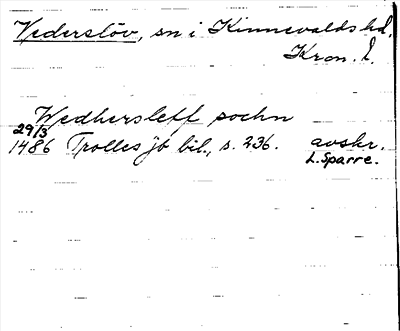 Vederslöv, sn i Kinnevalds hd,
Kron. l.
Wedhersleff sochn
29/3
1486 Trolles jb bil., s. 236. avskr.
L. Sparre.